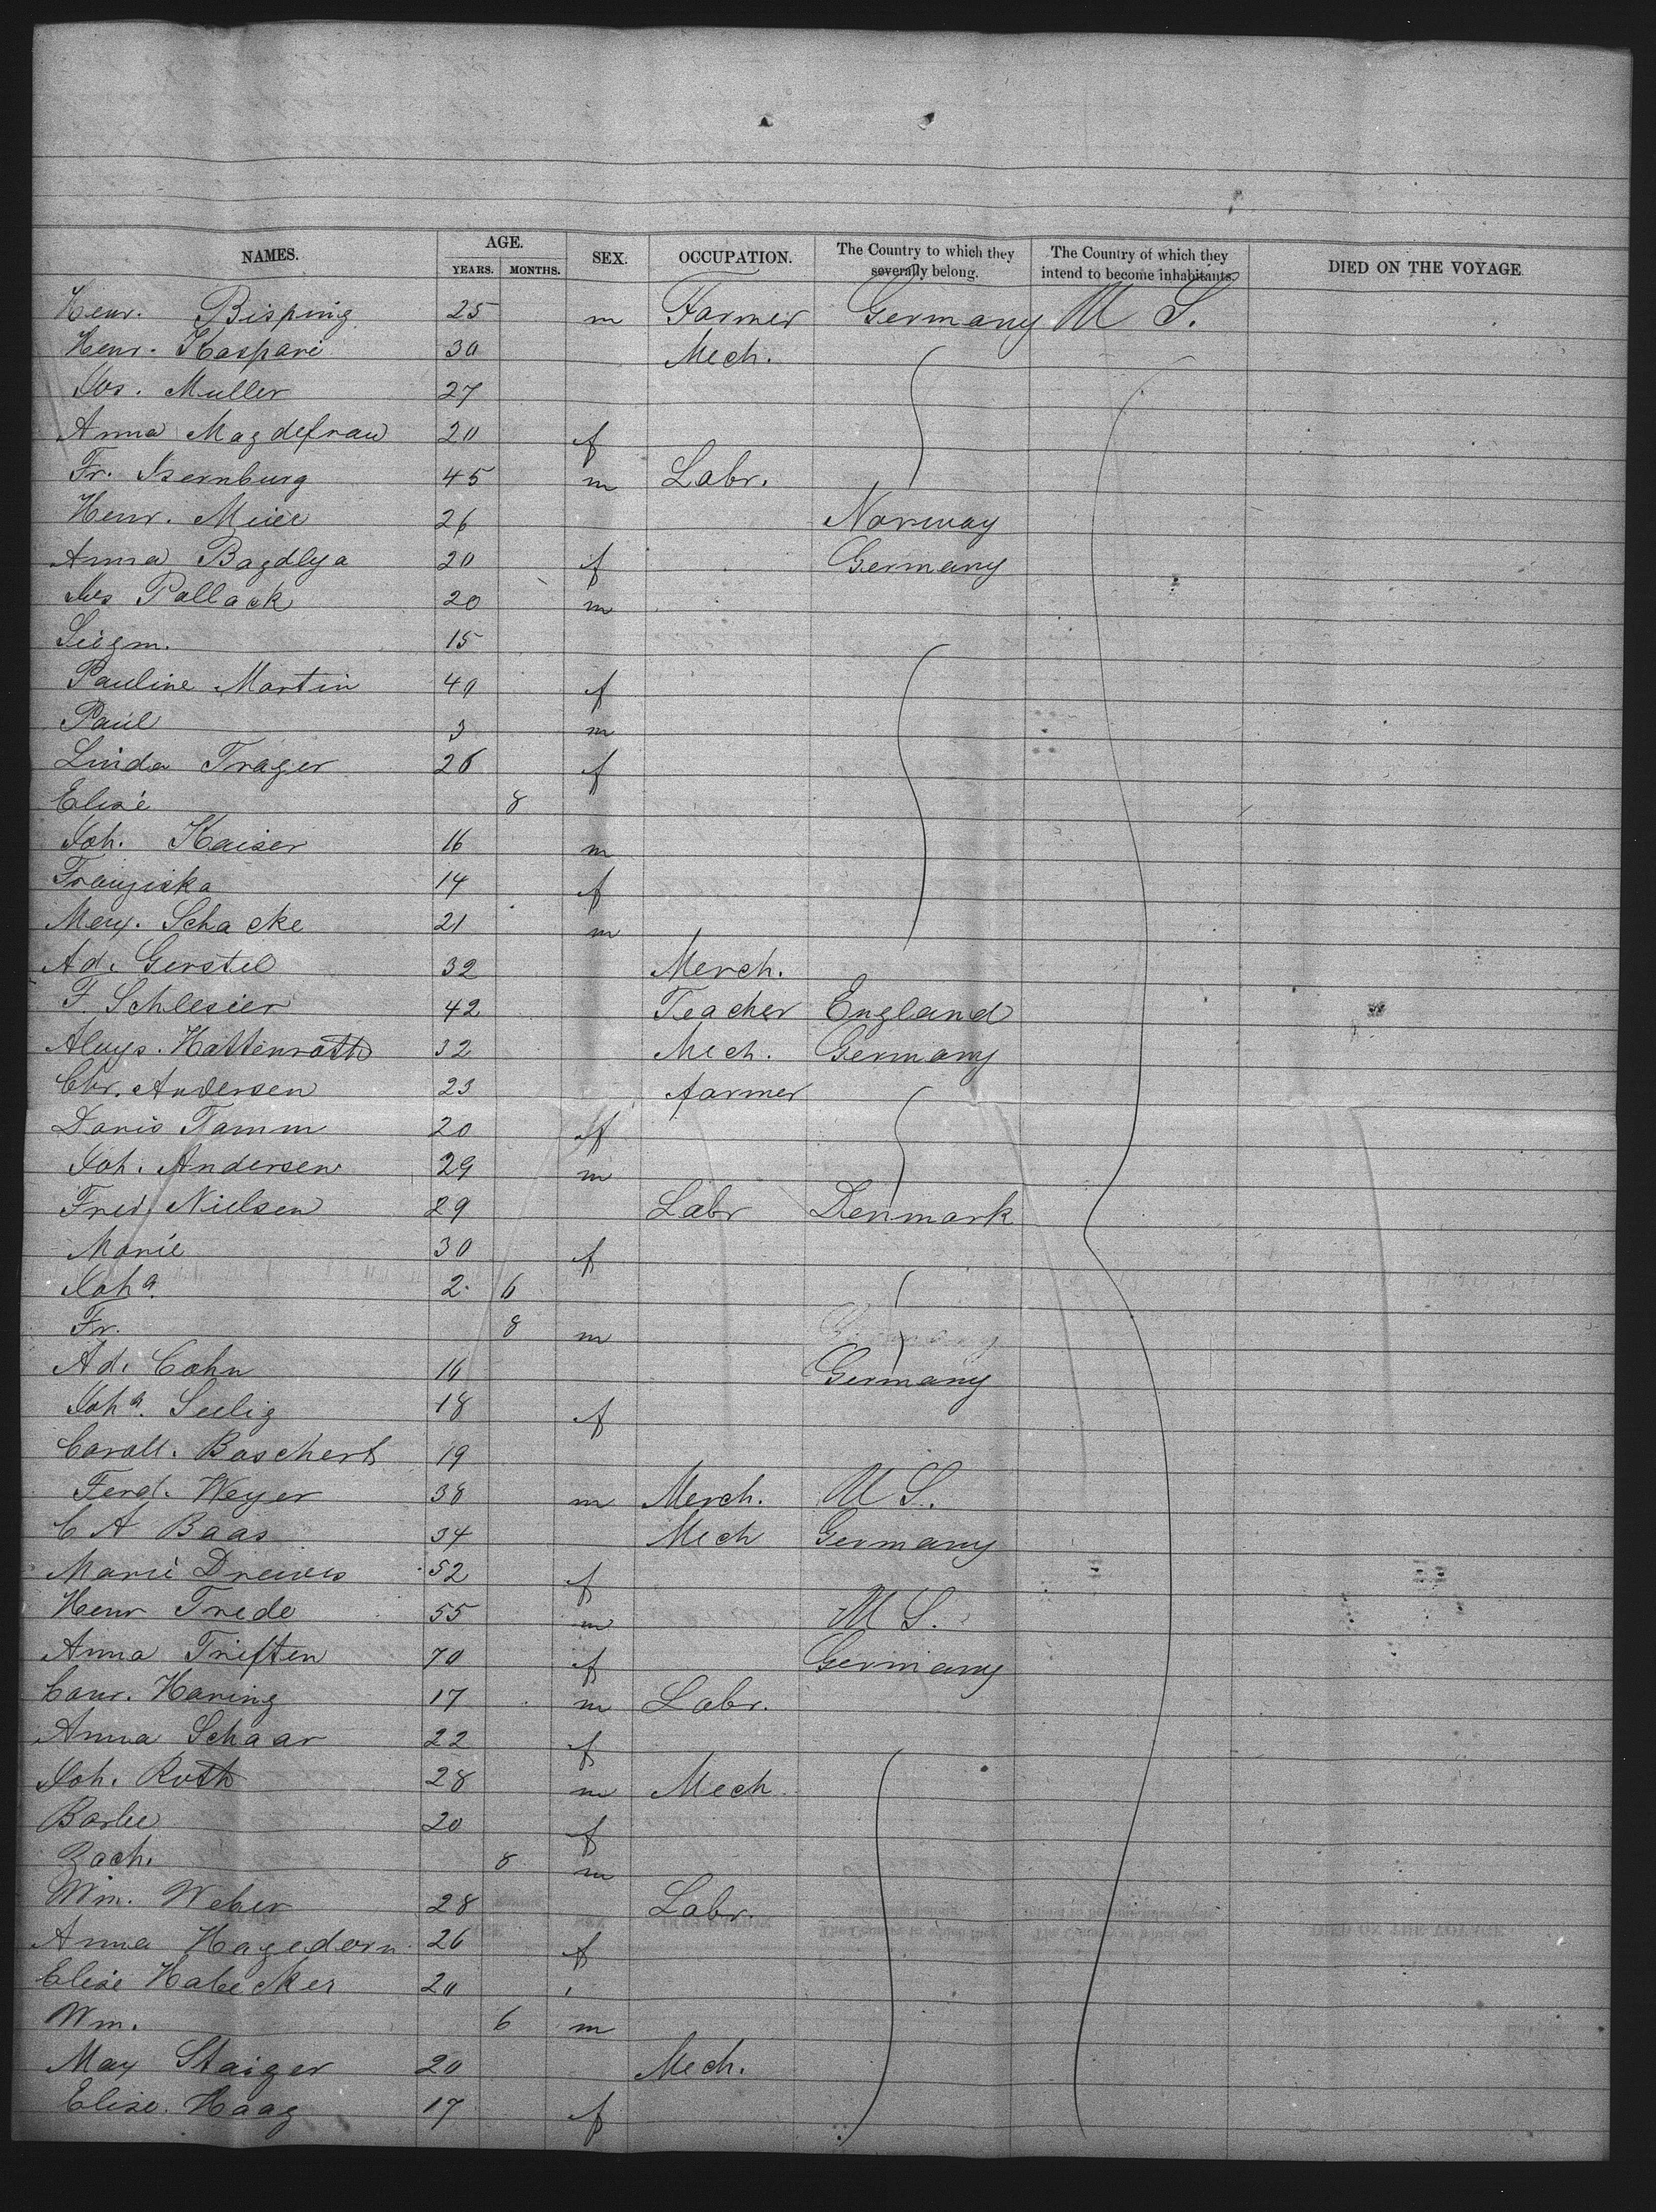 NAMES. AGE. SEX. OCCUPATION. The Country to which they severally belong. The Country of which they intend to become inhabitants. DIED ON THE VOYAGE
YEARS. MONTHS.
Henr. Bisping 25 m Farmer Germany U S.
Henr. Kaspari 30 Mech.
Jos. Muller 27
Anna Magdefrau 20 f
Fr. Isernburg 45 m Labr.
Henr. Meier 26 Norway
Anna Bagdlya 20 f Germany
Pollack 20 m
Siegm. 15
Pauline Martin 40 f
Paul 3 m
Linda Trager 26 f
Elise 8
Joh. Kaiser 16 m
Franziska 14 f
Schacke 21 m
Ad. Gerstel 32 Merch.
F. Schlesier 42 Teacher England
Aloys. Hattenroth 32 Mech. Germany
Chr. Andersen 23 farmer
Doris Tamm 20 f
Joh. Andersen 29 m
Fred. Nielsen 29 Labr Denmark
Marie 30 f
Joha. 2 6
Fr. 8 m
Ad. Cohn 16 Germany
Joha. Seelig 18 f
Boschert 19
Ferd. Weyer 38 m Merch. U S.
C A Baas 34 Mech Germany
Marie Drewes 52 f
Henr Trede 55 m U S.
Anna Triften 70 f Germany
Conr. Haring 17 m Labr.
Anna Schaar 22 f
Joh. Roth 28 m Mech
20 f
Zach. 8 m
Wm. Weber 28 Labr.
Anna Hagedorn 26 f
Elise Habecker 20
Wm. 6 m
Max Staiger 20 Mech.
Elise. Haag 17 f